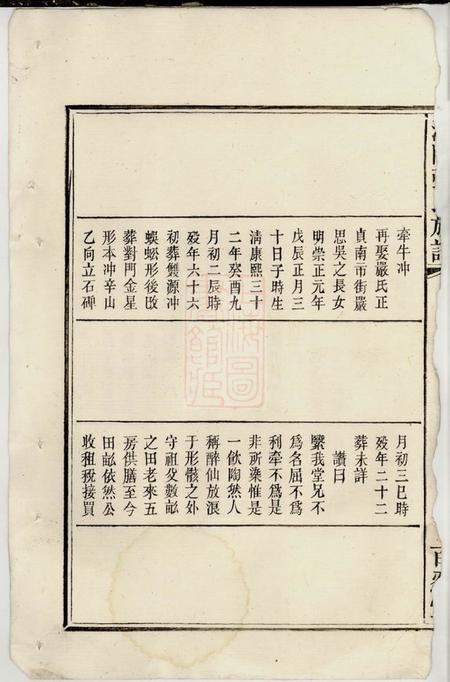 牽牛冲
再娶嚴氏正
貞南市街嚴
思吳之長女
明崇正元年
戊辰正月三
十日子時生
清康熙三十
二年癸酉九
月初二辰時
殁年六十六
初葬雙源冲
蜈蚣形後改
葬對門金星
形本冲辛山
乙向立石碑
月初三巳時
殁年二十二
葬未詳
讚曰
繄我堂兄不
為名屈不為
利牽不為是
非所染惟是
一飲陶然人
稱醉仙放浪
于形骸之外
守祖父數畝
之田老來五
房供膳至今
田畝依然公
收租稅接買